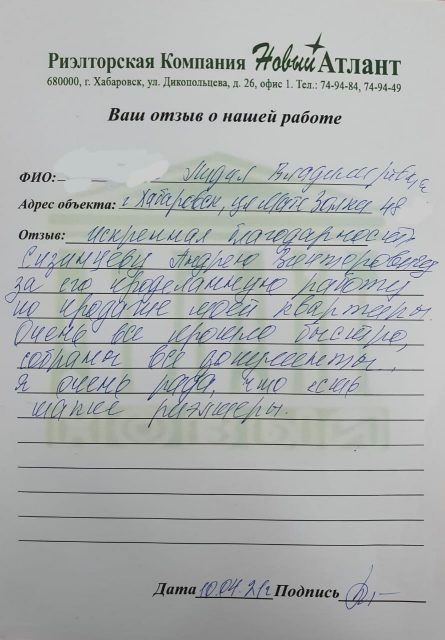 Риэлторская Компания Новый Атлант
680000, г. Хабаровск, ул. Дикопольцева, д. 26, офис 1. Тел.: 74-94-84, 74-94-49
Ваш отзыв о нашей работе
ФИО: Лидия Владимировна
Адрес объекта: г. Хабаровск, ул Матэ Залка 48
Отзыв: Искренная благодарность
Сизинцеву Андрею Викторовичу
за его проделанную работу
по продаже моей квартиры.
Очень все прошло быстро,
собраны все документы.
Я очень рада, что есть
такие риэлторы.
Дата 10.04.21г Подпись